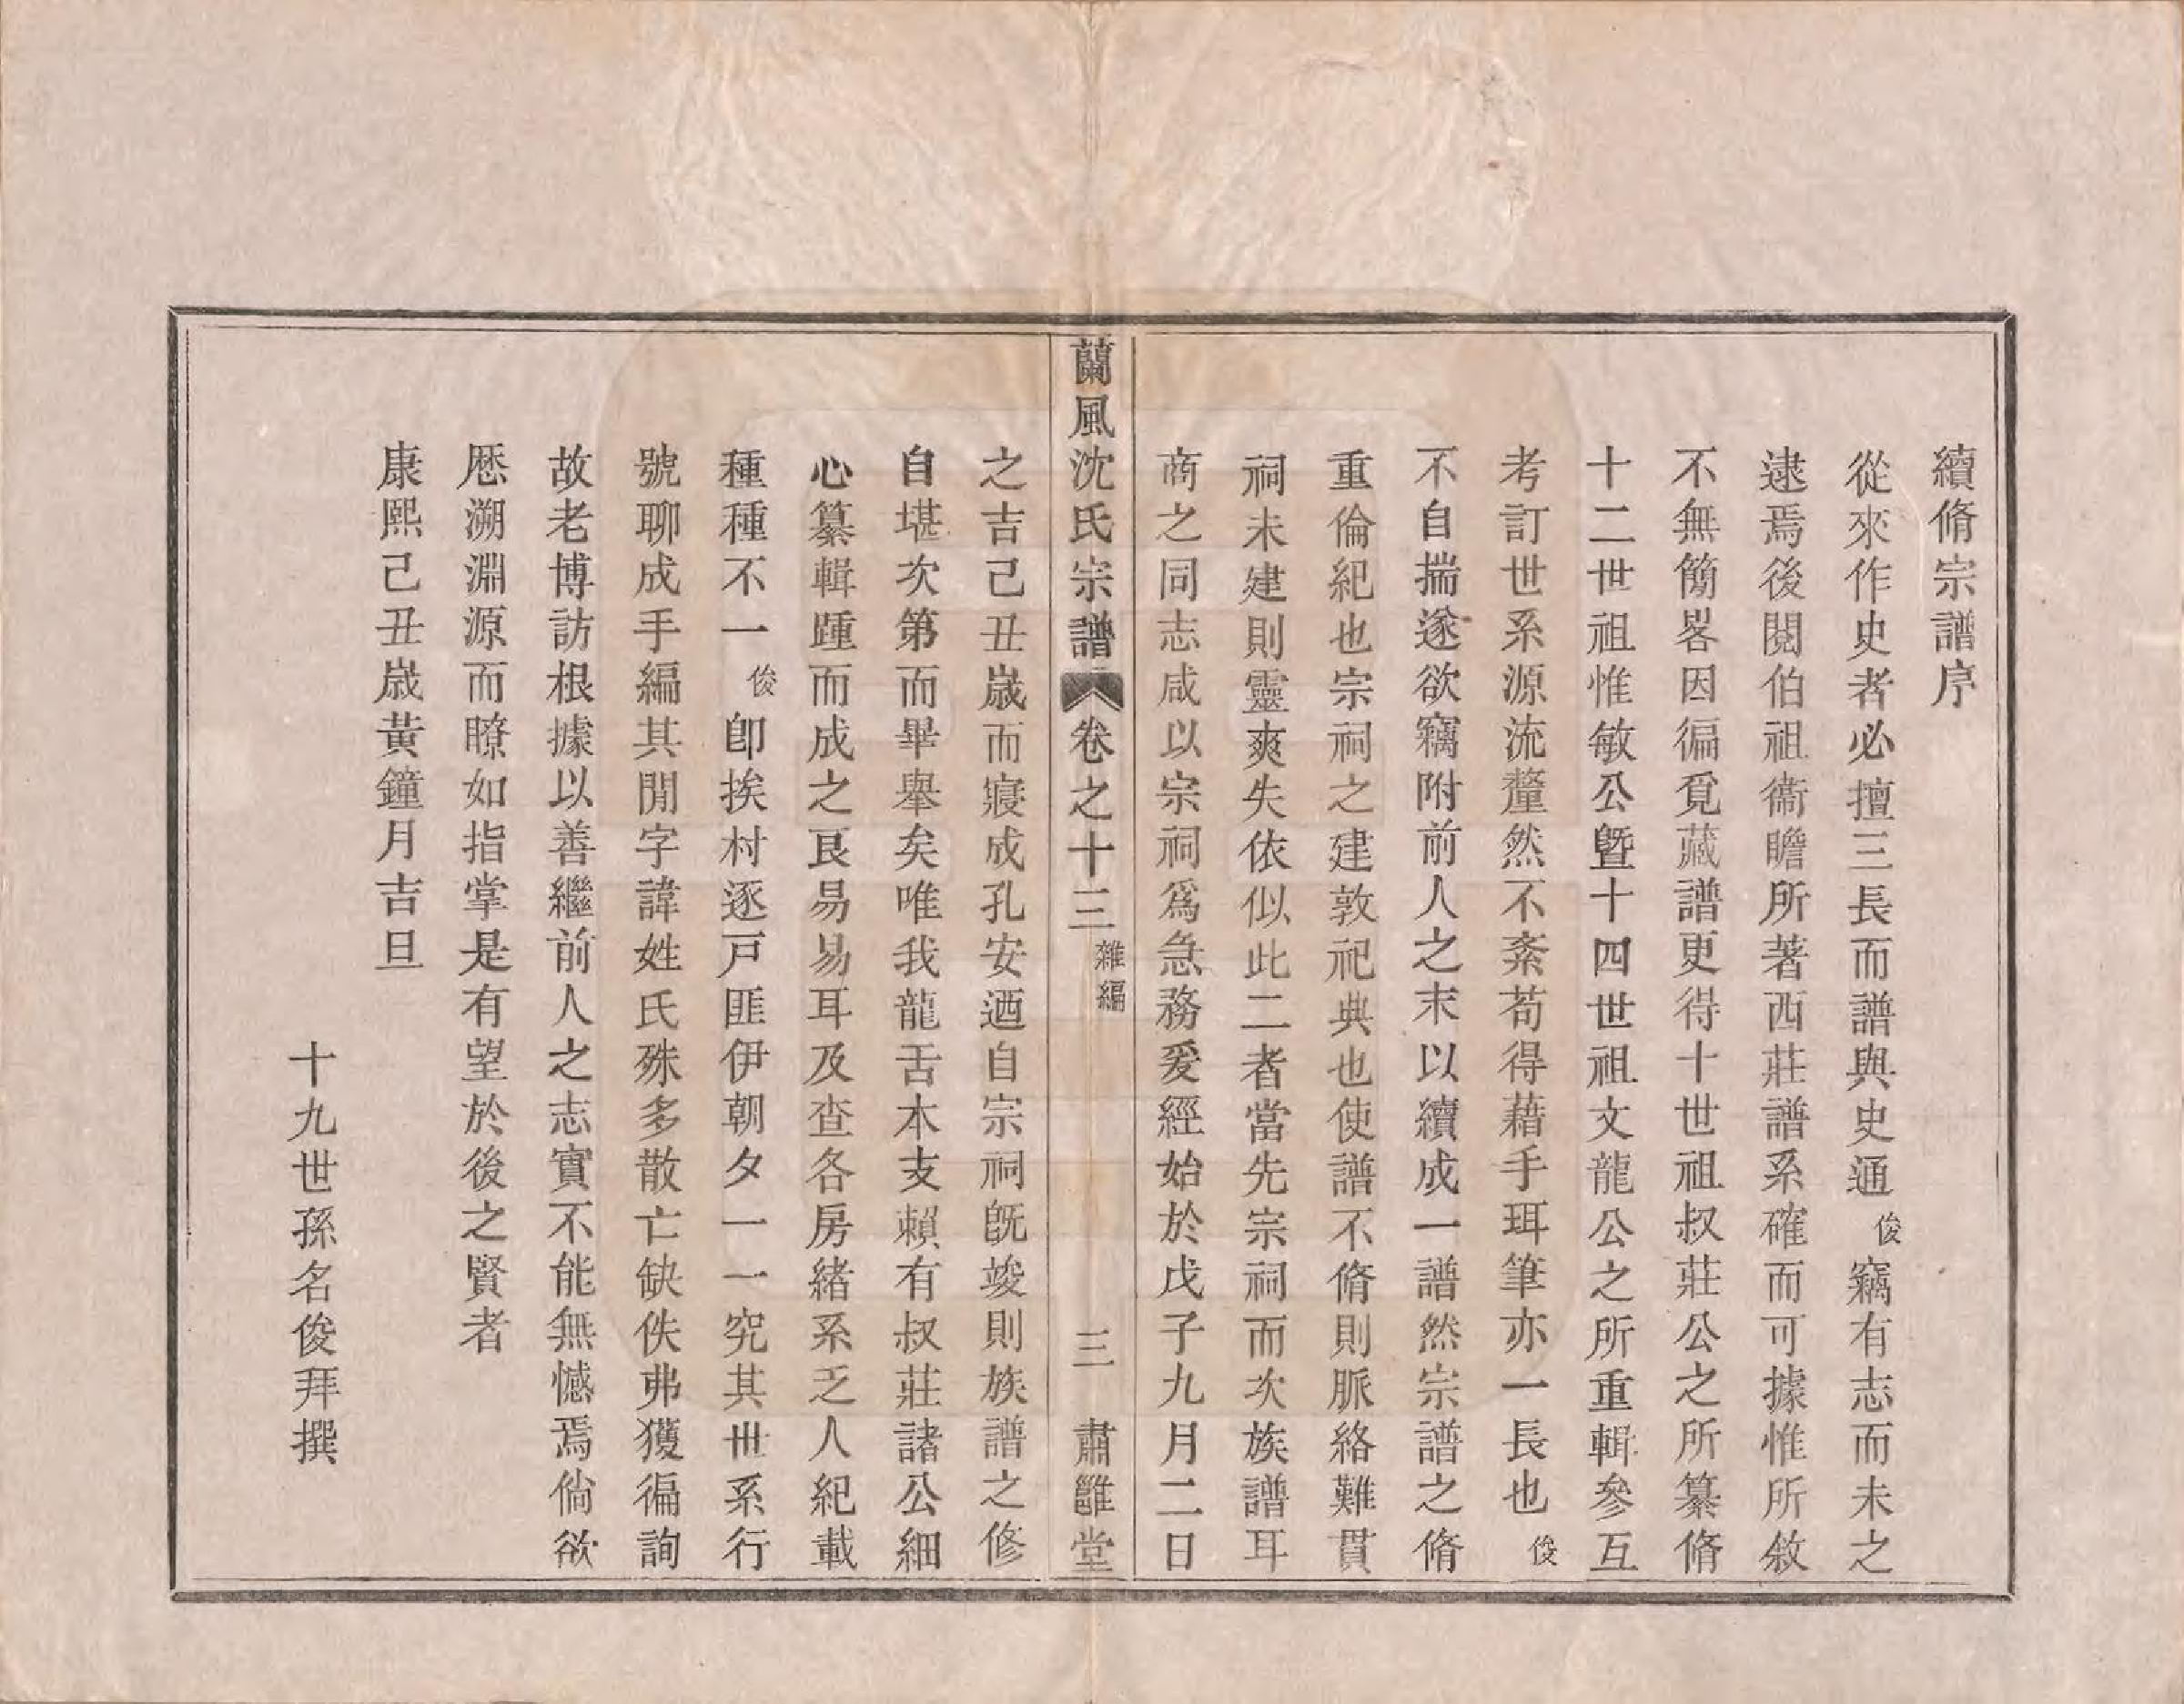 續脩宗譜序
從來作史者必擅三長而譜與史通俊竊有志而未之
逮焉後閱伯祖衞瞻所著西莊譜系確而可據惟所敘
不無簡畧因徧覓藏譜更得十世祖叔莊公之所纂脩
十二世祖惟敏公曁十四世祖文龍公之所重輯參互
考訂世系源流釐然不紊苟得藉手珥筆亦一長也俊
不自揣遂欲竊附前人之末以續成一譜然宗譜之脩
重倫紀也宗祠之建敦祀典也使譜不脩則脈絡難貫
祠未建則靈爽失依似此二者當先宗祠而次族譜耳
商之同志咸以宗祠爲急務爰經始於戊子九月二日
蘭風沈氏宗譜 卷之十三 雜編 三 肅雝堂
之吉己丑歲而寢成孔安迺自宗祠旣竣則族譜之修
自堪次第而畢舉矣唯我龍舌本支賴有叔莊諸公細
心纂輯踵而成之艮易易耳及查各房緒系乏人紀載
種種不一俊卽挨村逐戸匪伊朝夕一一究其丗系行
號聊成手編其閒字諱姓氏殊多散亡缺佚弗獲徧詢
故老博訪根據以善繼前人之志實不能無憾焉倘欲
厯溯淵源而瞭如指掌是有望於後之賢者
康熙己丑歲黃鐘月吉旦
十九世孫名俊拜撰